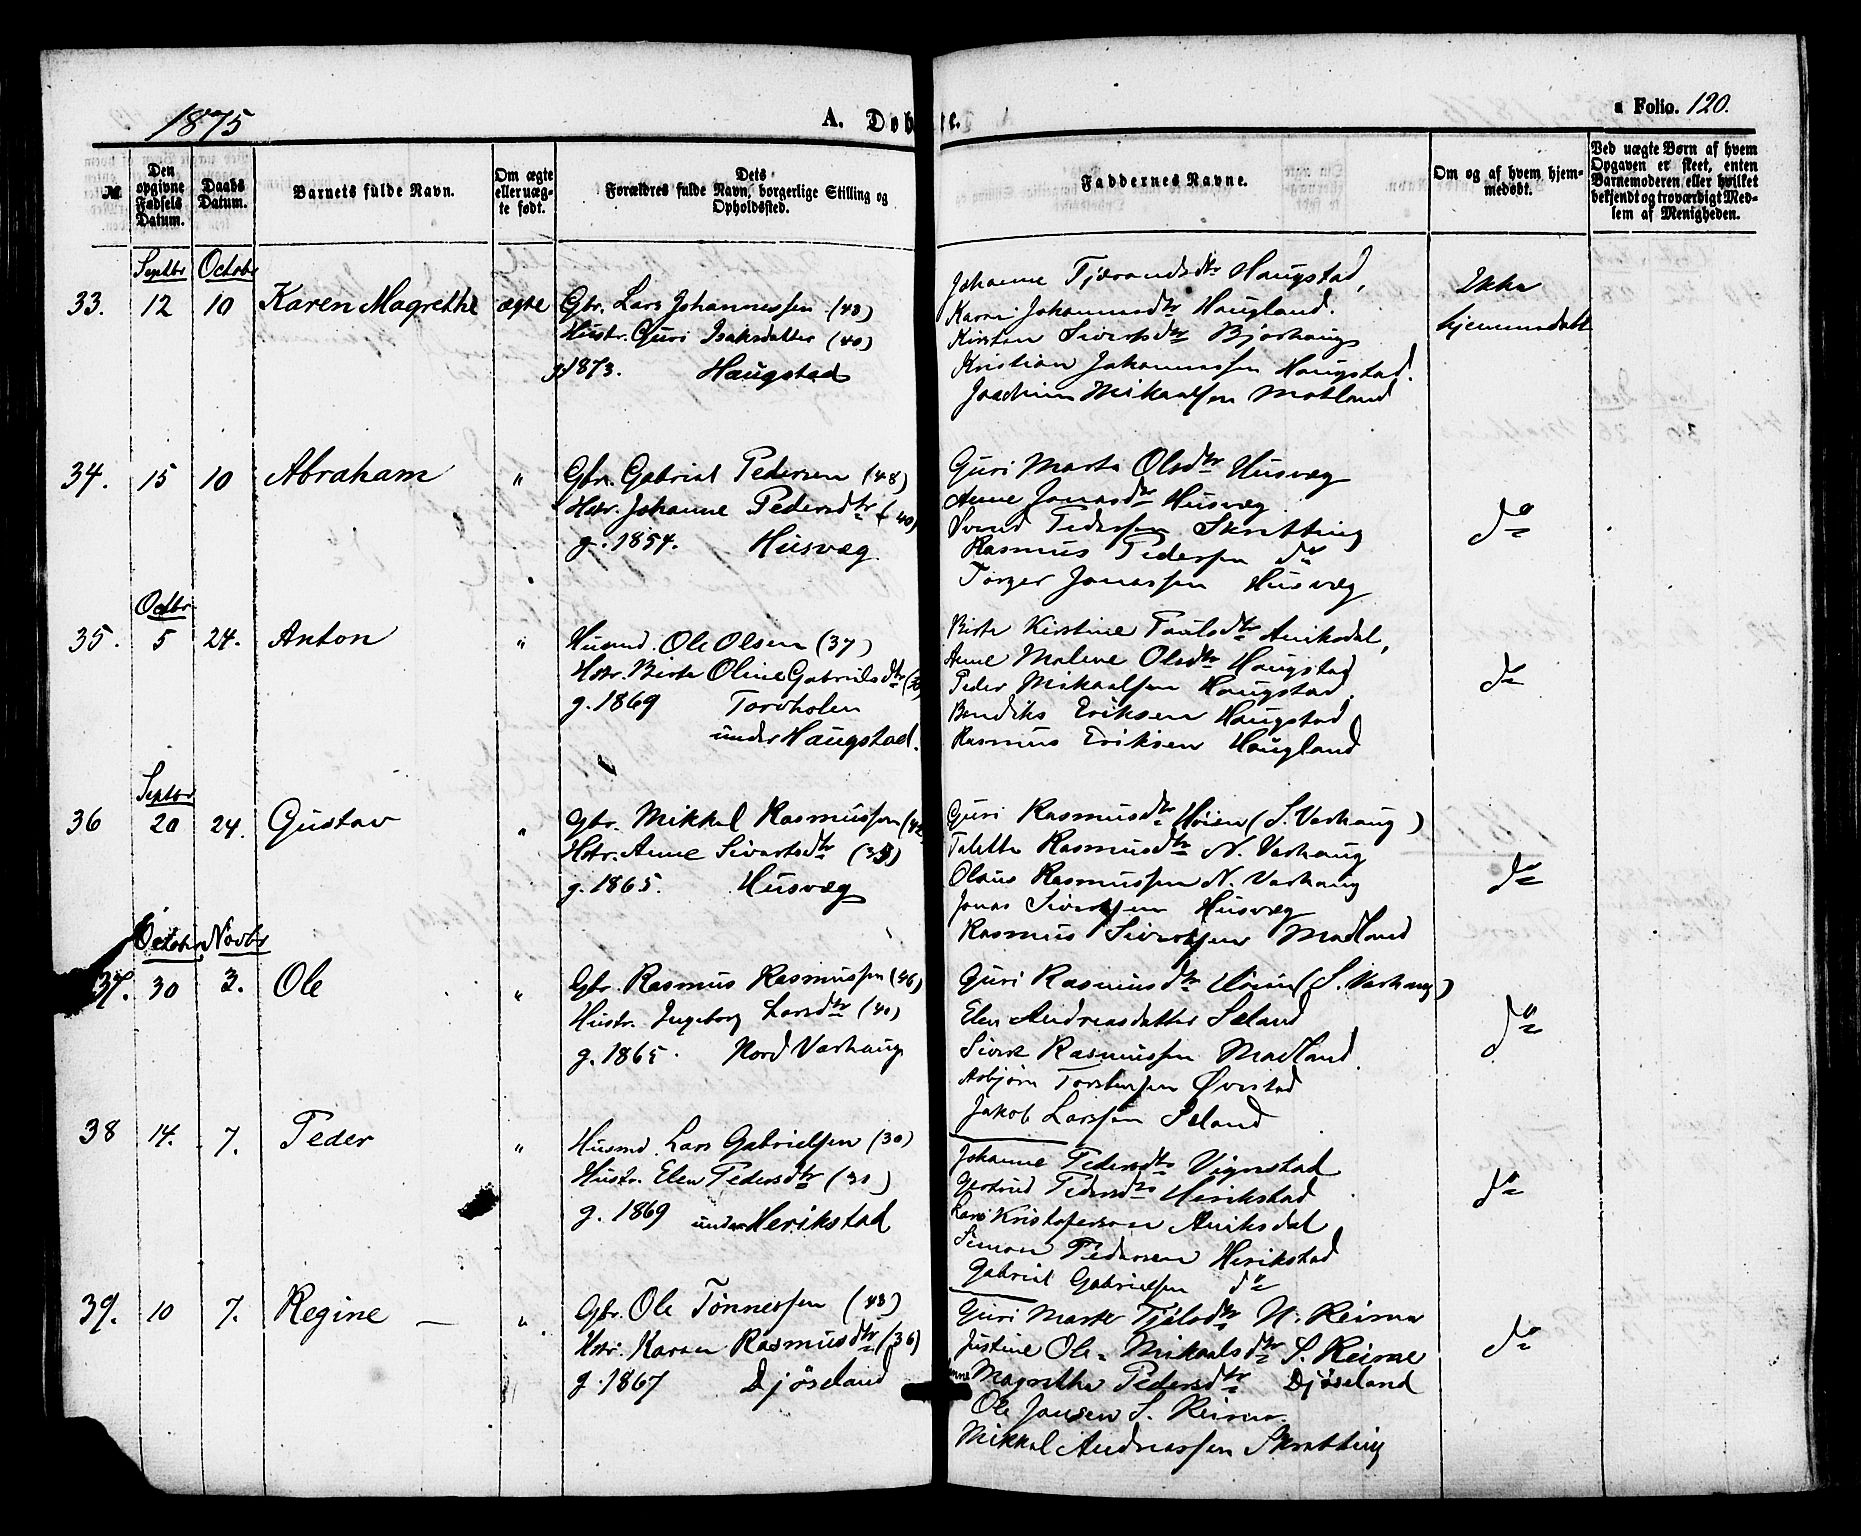 1875
A. Døbte.
a Folio. 120.
№
Den opgivne Fødsels Datum.
Daabs Datum.
Barnets fulde Navn.
Om ægte eller uægte født.
Dets Forældres fulde Navn, borgerlige Stilling og Opholdssted.
Faddernes Navne.
Om og af hvem hjemmedøbt.
Ved uægte Børn af hvem Opgaven er skeet, enten Barnemoderen eller hvilket bekjendt og troværdigt Medlem af Menigheden.
Septbr Octobr
33. 12 10 Karen Magrethe ægte
Gbr. Lars Johannessen (48)
Hustr. Guri Isaksdatter (40)
g. 1873. Haugstad
Johanne Tjerandsdtr Haugstad,
Karen Johannesdtr Haugland.
Kirsten Sivertsdtr Bjorhaug
Kristian Johannessen Haugstad.
Joachim Mikaalsen Motland
Ikke
hjemmedøbt
34. 15 10 Abraham "
Gbr. Gabriel Pedersen (48)
Hstr. Johanne Pedersdtr (40)
g. 1854. Husvæg
Guri Marta Olsdtr Husvæg
Anne Jonasdtr Husvæg
Svend Pedersen Skretting
Rasmus Pedersen do
Torger Jonassen Husvæg
do
Octbr
35. 5 24. Anton "
Husmd. Ole Olsen (37)
Hstr. Birte Oline Gabrielsdtr
g. 1869 Torvholen
under Haugstad.
Birte Kirstine Paulsdtr Aniksdal,
Anne Malene Olsdtr Haugstad
Peder Mikaalsen Haugstad
Bendiks Eriksen Haugstad
Rasmus Eriksen Haugland
do
Septbr
36 20 24. Gustav "
Gbr. Mikkel Rasmussen
Hstr. Anne Sivertsdtr (35)
g. 1865. Husvæg
Guri Rasmusdtr Höien (S. Varhaug)
Taletta Rasmusdtr N. Varhaug
Olaus Rasmussen N. Varhaug
Jonas Sivertsen Husvæg
Rasmus Sivertsen Madland
do
Octobr Novbr
37. 30 3. Ole "
Gbr. Rasmus Rasmussen (46)
Hustr. Ingeborg Larsdtr (40)
g. 1865. Nord Varhaug
Guri Rasmusdtr Höien (S. Varhaug)
Elen Andreasdatter Seland
Sivert Rasmussen Madland.
Asbjörn Torstensen Överstad
Jakob Larssen Seland
do
38 14. 7. Peder "
Husmd. Lars Gabrielsen (30)
Hustr. Elen Pedersdtr (30)
g. 1869 under Herikstad
Johanne Pedersdtr Vignstad
Gertrud Pedersdtr Herikstad
Lars Kristofersen Aniksdal
Simon Pedersen Herikstad
Gabriel Gabrielsen do
do
39. 10 7. Regine — "
Gbr. Ole Tönnessen (43)
Hstr. Karen Rasmusdtr (36)
g. 1867 Djöseland
Guri Marte Tjölsdtr N. Reime
Justine Ole-Mikaalsdtr S. Reime
Anne Magrethe Pedersdtr Djöseland
Ole Jansen S. Reime.
Mikkel Andreassen Skretting
do